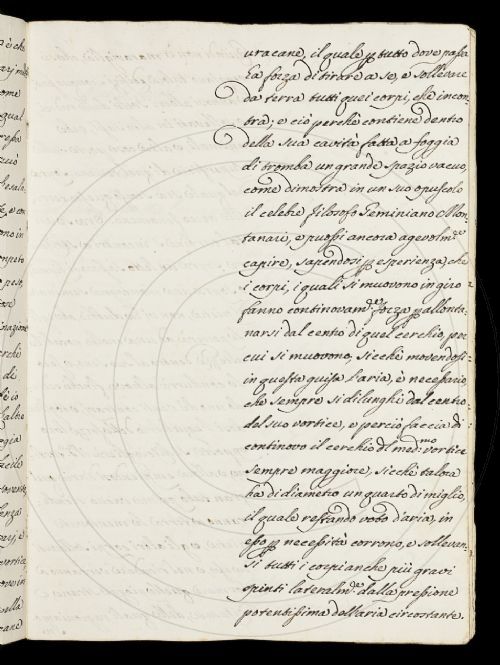 uracane, il quale ꝑ tutto dove passa
ha forza di tirare a se, e sollevare
da terra tutti quei corpi, che incon-
tra; e ciò perchè contiene dentro
della sua cavità fatta a foggia
di tromba un grande spazio vacuo,
come dimostra in un suo opuscolo
il celebre Filosofo Geminiano Mon-
tanari, e puossi ancora agevolm.te
capire, sapendosi ꝑ esperienza, che
i corpi, i quali si muovono in giro
fanno continovam.te forza ꝑ allonta-
narsi dal centro di quel cerchio, per
cui si muovono, sicchè movendosi
in questa guisa l'aria, è necessario,
che sempre si dilunghi dal centro
del suo vortice, e perciò faccia di
continovo il cerchio di med.mo vortice
sempre maggiore, sicchè talora
ha di diametro un quarto di miglio,
il quale restando voto d'aria, in
esso ꝑ necessità corrono, e sollevan-
si tutti i corpi anche più gravi
spinti lateralm.te dalla pressione
potentissima dell'aria circostante.